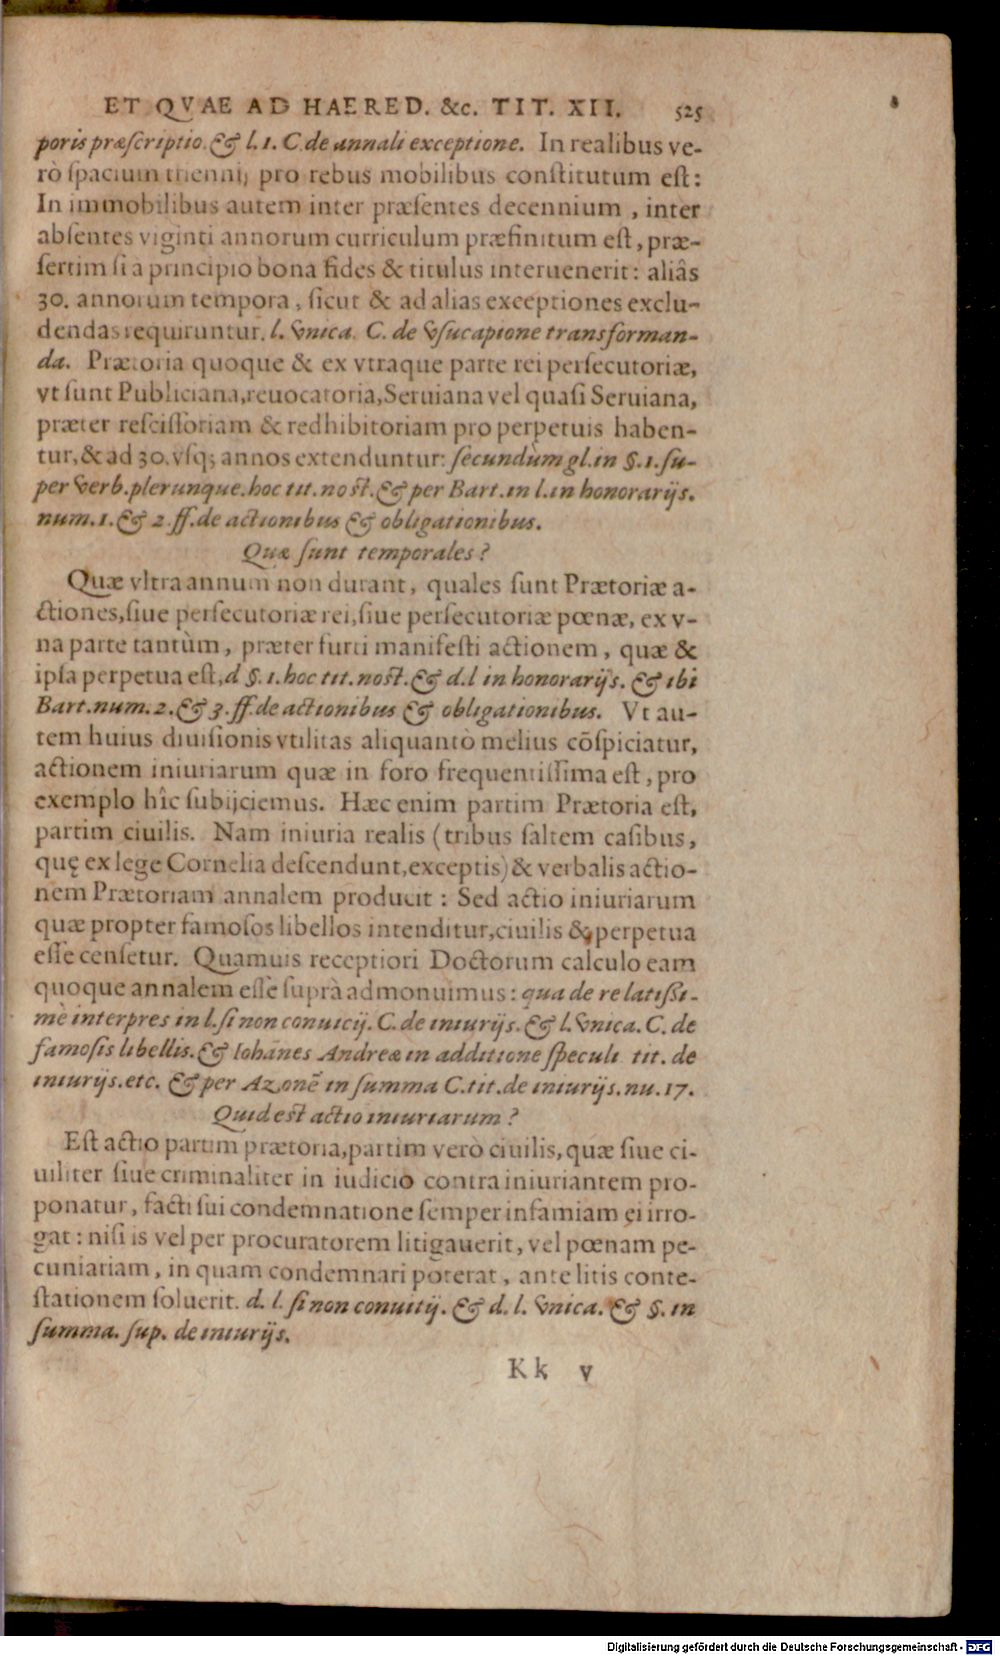 ET QVAE AD HAERED. &c. TIT. XII. 525
poris præscriptio. & l. 1. C. de annali exceptione. In realibus ve-
rò spacium triennij pro rebus mobilibus constitutum est:
In immobilibus autem inter præsentes decennium, inter
absentes viginti annorum curriculum præfinitum est, præ-
sertim si a principio bona fides & titulus interuenerit: aliâs
30. annorum tempora, sicut & ad alias exceptiones exclu-
dendas requiruntur. l. vnica. C. de vsucapione transforman-
da. Prætoria quoque & ex vtraque parte rei persecutoriæ,
vt sunt Publiciana, reuocatoria, Seruiana vel quasi Seruiana,
præter rescissoriam & redhibitoriam pro perpetuis haben-
tur, & ad 30. vsq; annos extenduntur: secundùm gl. in §. 1. su-
per verb. plerunque. hoc tit. nost. & per Bart. in l. in honorarijs.
num. 1. & 2. ff. de actionibus & obligationibus.
Quæ sunt temporales?
Quæ vltra annum non durant, quales sunt Prætoriæ a-
ctiones, siue persecutoriæ rei, siue persecutoriæ pœnæ, ex v-
na parte tantùm, præter furti manifesti actionem, quæ &
ipsa perpetua est, d §. 1. hoc tit. nost. & d. l in honorarijs. & ibi
Bart. num. 2. & 3. ff. de actionibus & obligationibus. Vt au-
tem huius diuisionis vtilitas aliquantò melius cõspiciatur,
actionem iniuriarum quæ in foro frequentissima est, pro
exemplo hîc subijciemus. Hæc enim partim Prætoria est,
partim ciuilis. Nam iniuria realis (tribus saltem casibus,
quę ex lege Cornelia descendunt, exceptis) & verbalis actio-
nem Prætoriam annalem producit: Sed actio iniuriarum
quæ propter famosos libellos intenditur, ciuilis & perpetua
esse censetur. Quamuis receptiori Doctorum calculo eam
quoque annalem esse suprà admonuimus: qua de re latissi-
mè interpres in l. si non conuicij. C. de iniurijs. & l. vnica. C. de
famosis libellis. & Iohanes Andreæ in additione speculi tit. de
iniurijs. etc. & per Azonẽ in summa C. tit. de iniurijs. nu. 17.
Quid est actio iniuriarum?
Est actio partim prætoria, partim verò ciuilis, quæ siue ci-
uiliter siue criminaliter in iudicio contra iniuriantem pro-
ponatur, facti sui condemnatione semper infamiam ei irro-
gat: nisi is vel per procuratorem litigauerit, vel pœnam pe-
cuniariam, in quam condemnari poterat, ante litis conte-
stationem soluerit. d. l. si non conuitij. & d. l. vnica. & §. in
summa. sup. de iniurijs.
Kk v
Digitalisierung gefördert durch die Deutsche Forschungsgemeinschaft - DFG